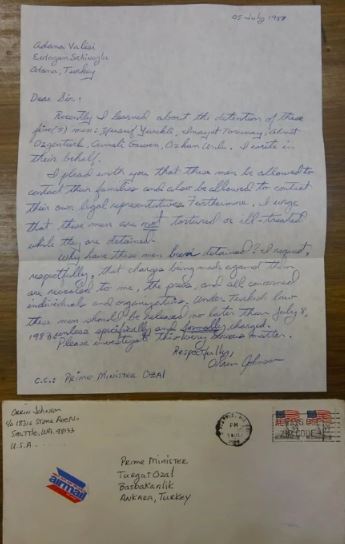 05 July 1988
Adana Valisi
Erdogan
Adana, Turkey
Dear Sir:
Recently I learned about the detention of these
five(5) men: Yusuf
I write in
their behalf.
I plead with you that these men be allowed to
contact their families and also be allowed to contact
their own legal representatives. Furthermore, I urge
that these men are not tortured or ill-treated
while they are detained.
Why have these men been detained? I request,
respectfully, that charges being made against them
are revealed to me, the press, and all concerned
individuals and organizations. Under Turkish law
these men should be released no later than July 8,
1988 unless specifically and formally charged.
Please investigate this very serious matter.
Respectfully,
Orrin Johnson
C.C.: Prime Minister Ozal
Orrin Johnson
Seattle, WA.
U.S.A.
airmail
Prime Minister
Turgut Ozal
Basbakanlik
Ankara, Turkey
PM